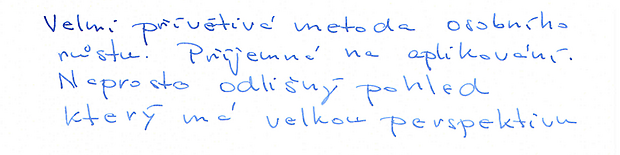 Velmi přívětivá metoda osobního
růstu. Příjemná na aplikování.
Naprosto odlišný pohled
který má velkou perspektivu